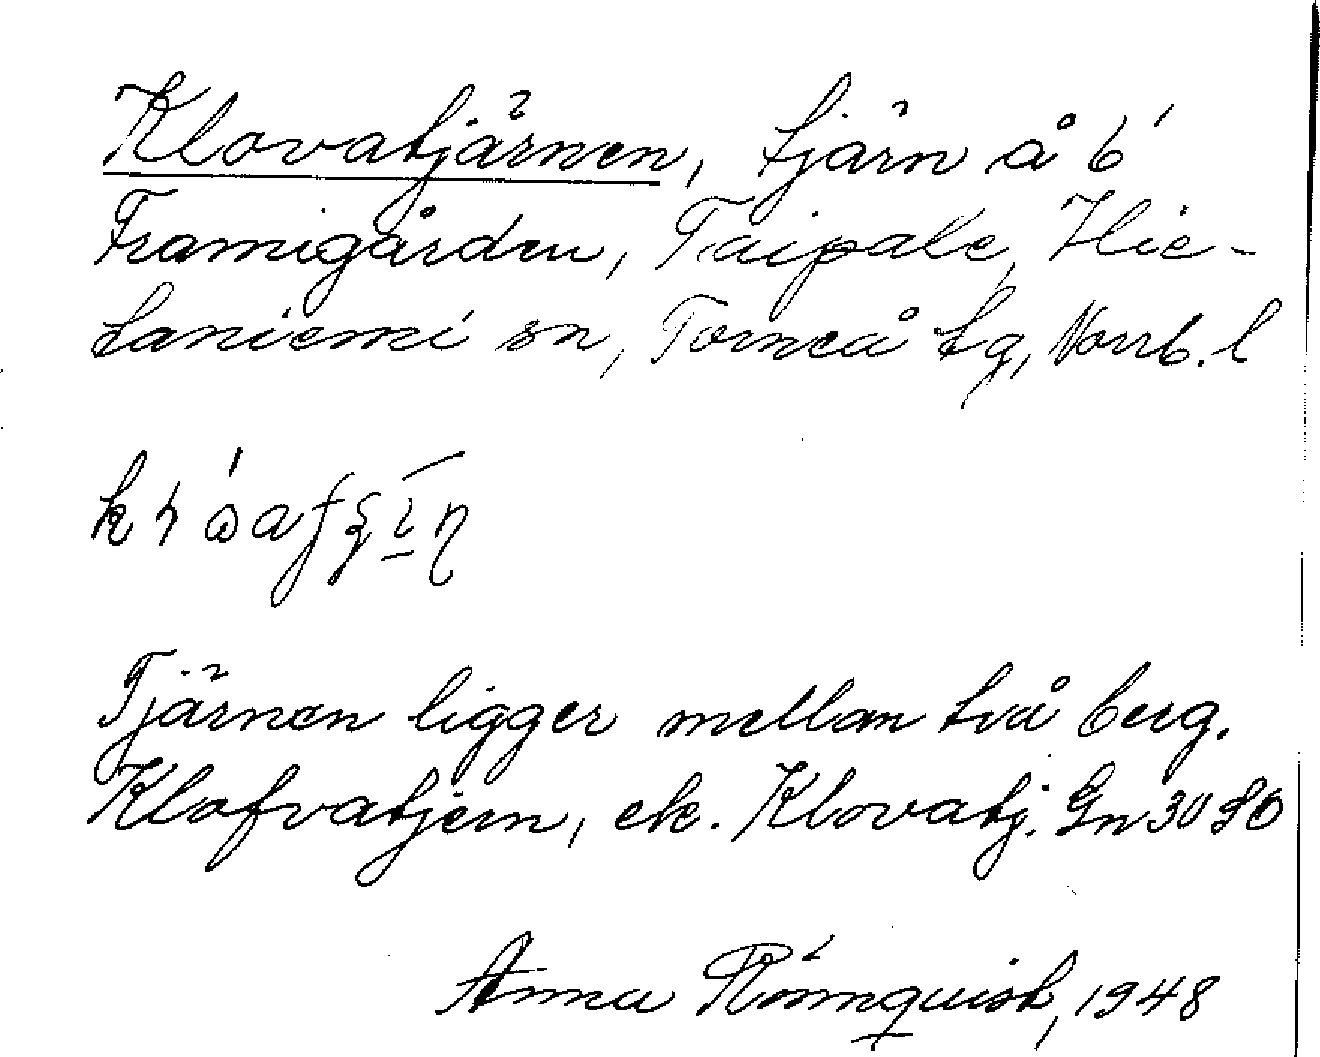 Klovatjärnen, tjärn å b'
Framigården, Taipale, Hie-
taniemi sn, Torneå tg, Norrb. l
Tjärnen ligger mellan två berg.
Klofvatjern, ek. Klovatj. Gn 30 SO
Anna Rönnquist, 1948